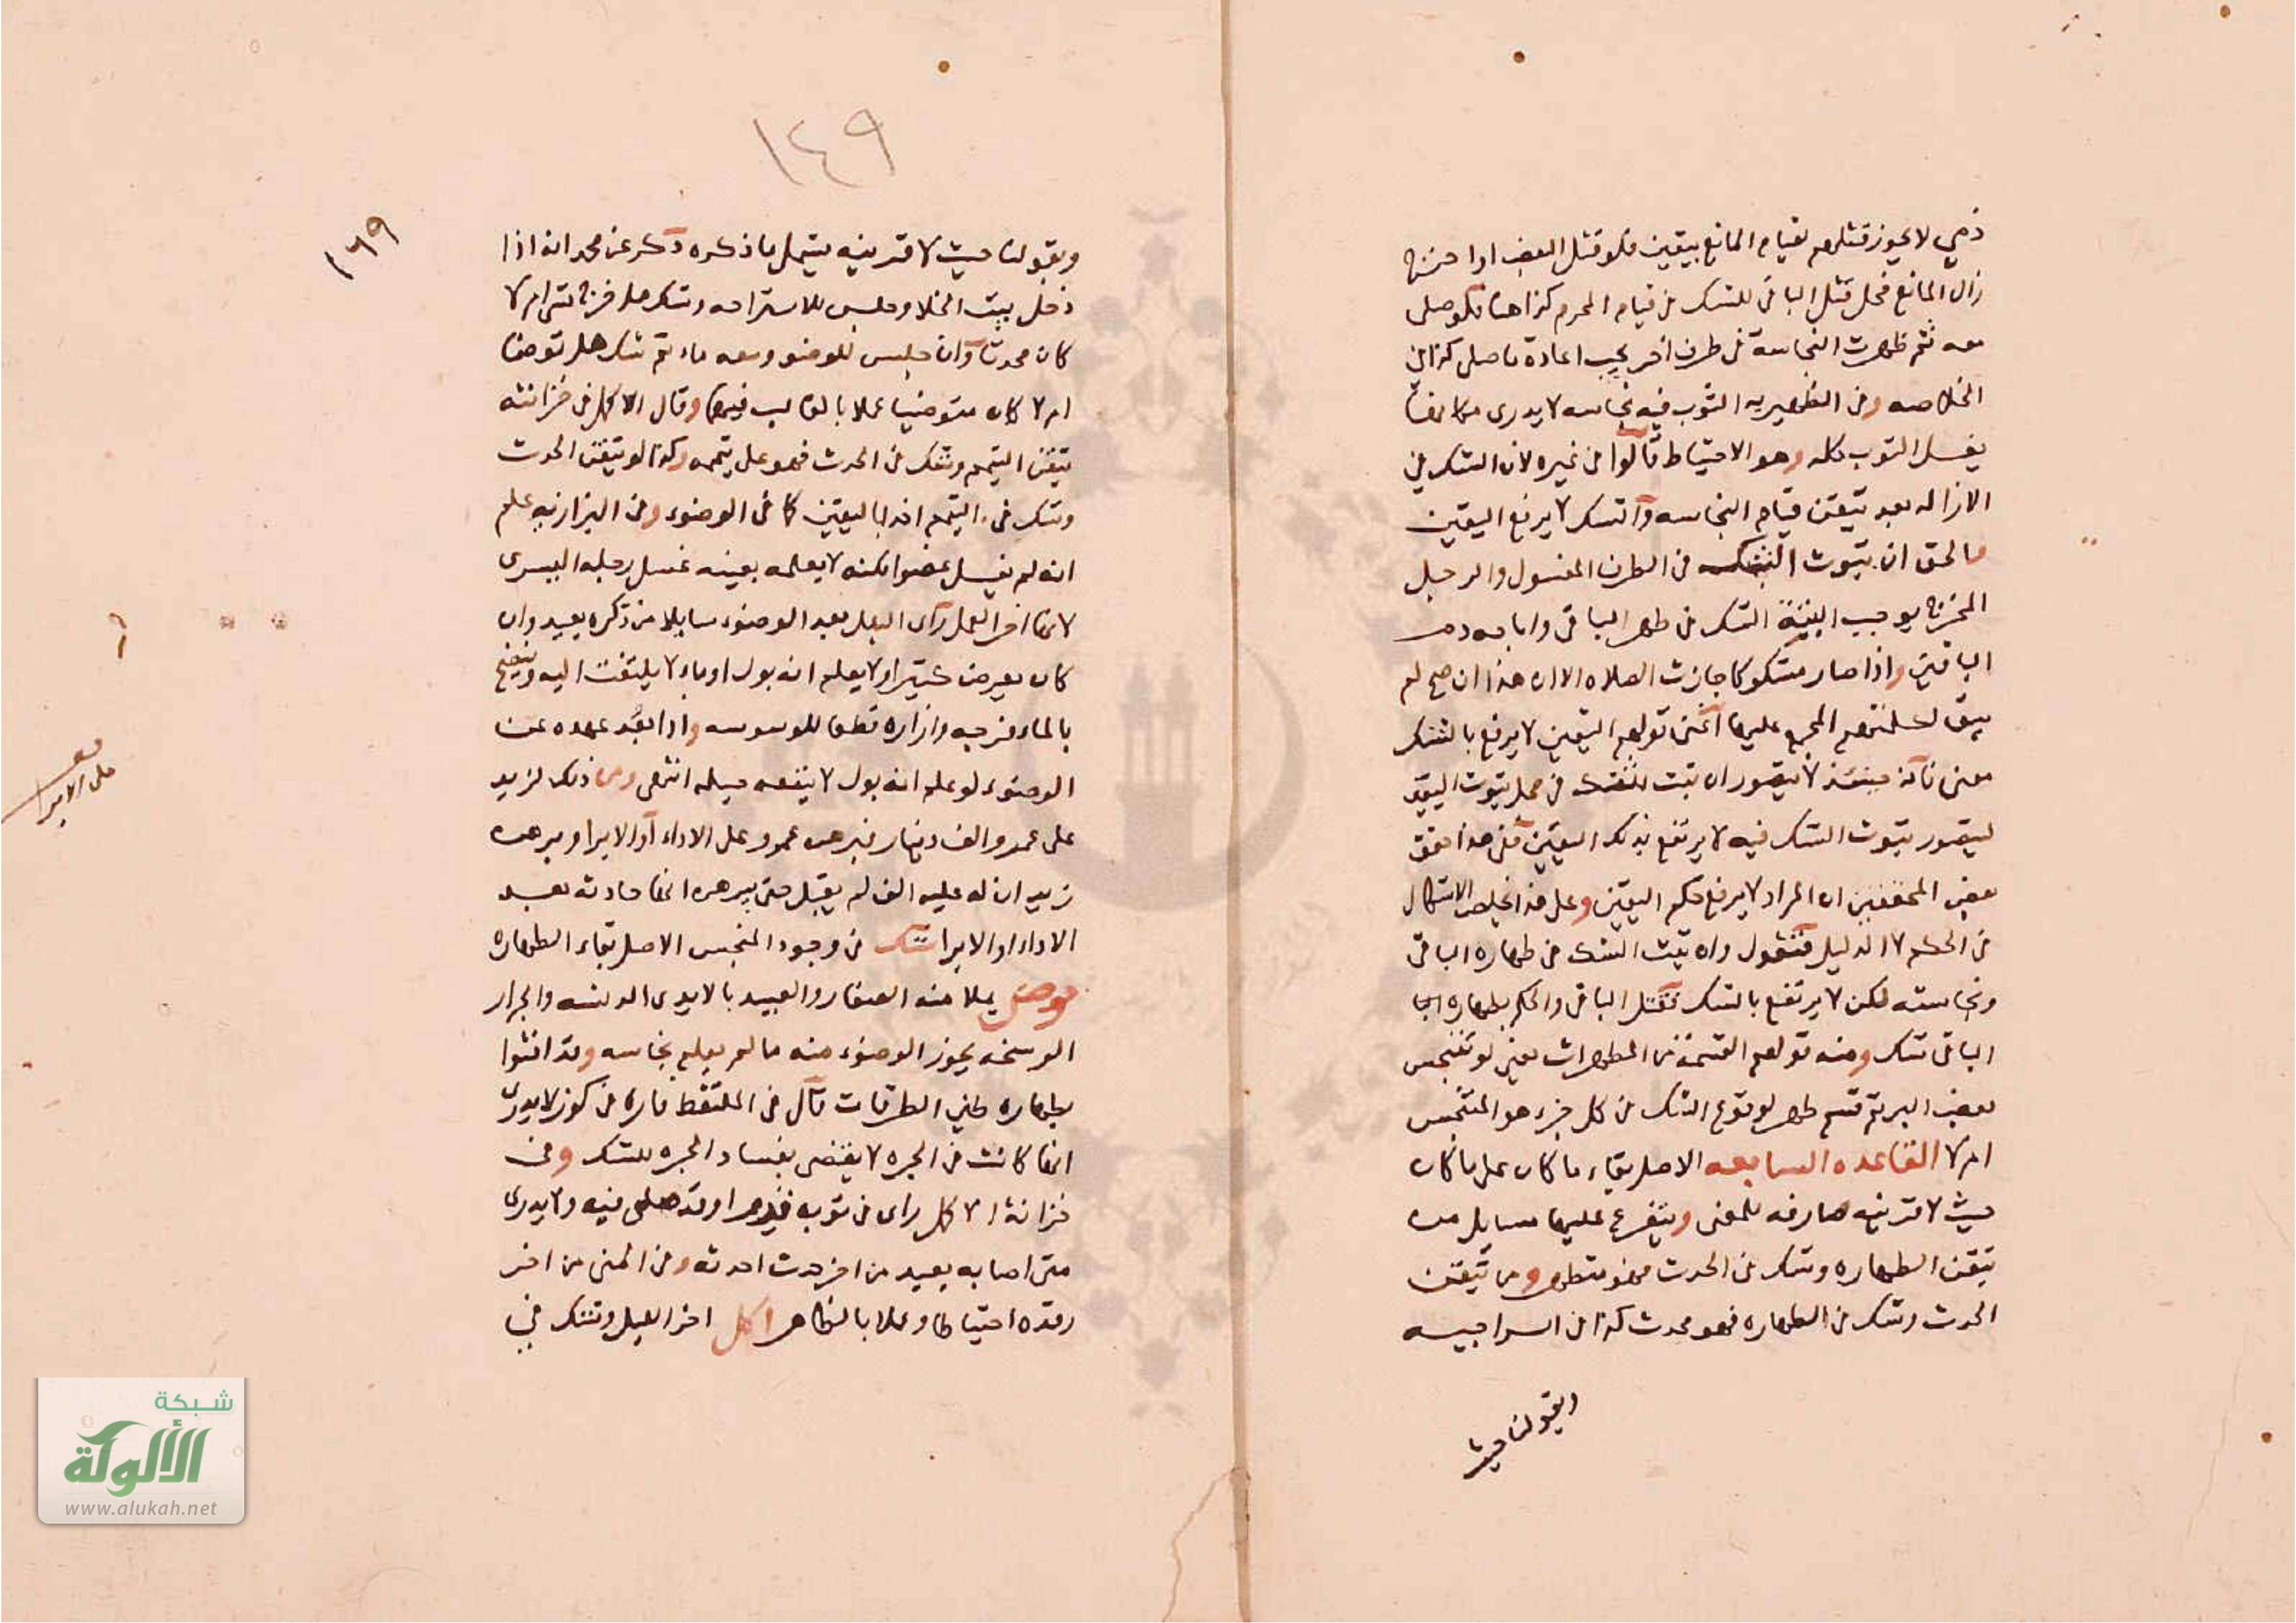 ذمي لا يجوز قتلهم لقيام المانع بيقين فلو قتل البعض او اخرج
زال المانع فحل قتل الباقي للشك في قيام المحرم كذا هنا فلو صلى
معه ثم ظهرت النجاسة في طرف اخر يجب اعادة ما صلى كذا في
الخلاصه وفي الظهيريه الثوب فيه نجاسه لا يدرى مكانها
يغسل الثوب كله وهو الاحتياط قالوا في غيره لان الشك في
الازاله بعد تيقن قيام النجاسه والشك لا يرفع اليقين
فالحق ان ثبوت الشك في الطرف المغسول والرجل
المخرج يوجب البتة الشك في طهر الباقي واباحه دم
الباقين واذا صار مشكوكا جازت الصلاه الا ان هذا ان صح لم
يبق لكلمتهم المجمع عليها اعني قولهم اليقين لا يرفع بالشك
معنى فانه حينئذ لا يتصور ان يثبت شك في محل ثبوت اليقين
ليتصور ثبوت الشك فيه لا يرتفع بذلك اليقين فعن هذا حقق
بعض المحققين ان المراد لا يرفع حكم اليقين وعلى هذا يخلص الاشكال
في الحكم لا الدليل فنقول وان ثبت الشك في طهاره الباقي
ونجاسته لكن لا يرتفع بالشك فقتل الباقي والحكم بطهاره
الباقي شك ومنه قولهم القسمة من المطهرات يعني لو تنجس
بعض البر ثم قسم طهر لوقوع الشك في كل جزء هو المتنجس
ام لا القاعده السابعه الاصل بقاء ما كان على ما كان
حيث لا قرينه صارفه للمعنى ويتفرع عليها مسايل من
تيقن الطهاره وشك في الحدث فهو متطهر ومن تيقن
الحدث وشك في الطهاره فهو محدث كذا في السراجيه
وبقولنا حيث
١٤٩
١٦٩
وبقولنا حيث لا قرينه يشمل ما ذكره ذكر عن محمد انه اذا
دخل بيت الخلا وجلس للاستراحه وشك هل خرج شئ ام لا
كان محدثا وان جلس للوضو ومعه ماء ثم شك هل توضا
ام لا كان متوضيا عملا بالغالب فيهما وقال الاكمل في خزانته
تيقن التيمم وشك في الحدث فهو على تيممه وكذا لو تيقن الحدث
وشك في التيمم اخذ باليقين كما في الوضوء وفي البزازيه علم
انه لم يغسل عضوا لكنه لا يعلمه بعينه غسل رجله اليسرى
لانها اخر العمل رأى البلل بعد الوضوء سايلا من ذكره يعيد وان
كان يعرض كثيرا ولا يعلم انه بول او ماء لا يلتفت اليه وينضح
بالماء فرجه وازاره قطعا للوسوسه واذا بعد عهده عن
الوضوء لو علم انه بول لا ينفعه حيله انتهى ومن ذلك لزيد
على عمرو الف دينار فبرهن عمرو على الاداء أو الابرا وبرهن
زيد ان له عليه الف لم يقبل حتى يبرهن انها حادثه بعد
الاداء او الابرا شك في وجود المنجس الاصل بقاء الطهاره
حوض يملا منه الصغار والعبيد بالايدى الدنسه والجرار
الوسخه يجوز الوضوء منه ما لم يعلم نجاسه وقد افتوا
بطهاره طين الطرقات قال في الملتقط فاره في كوز لا يدرى
انها كانت في الجره لا يقضى بفساد الجره للشك وفي
خزانة الاكمل راى في ثوبه قذرا وقد صلى فيه ولا يدرى
متى اصابه يعيد من اخر حدث احدثه وفي المني من اخر
رقده احتياطا وعملا بالظاهر اكل اخر الليل وشك في
على الابرا
شبكة
الألوكة
www.alukah.net